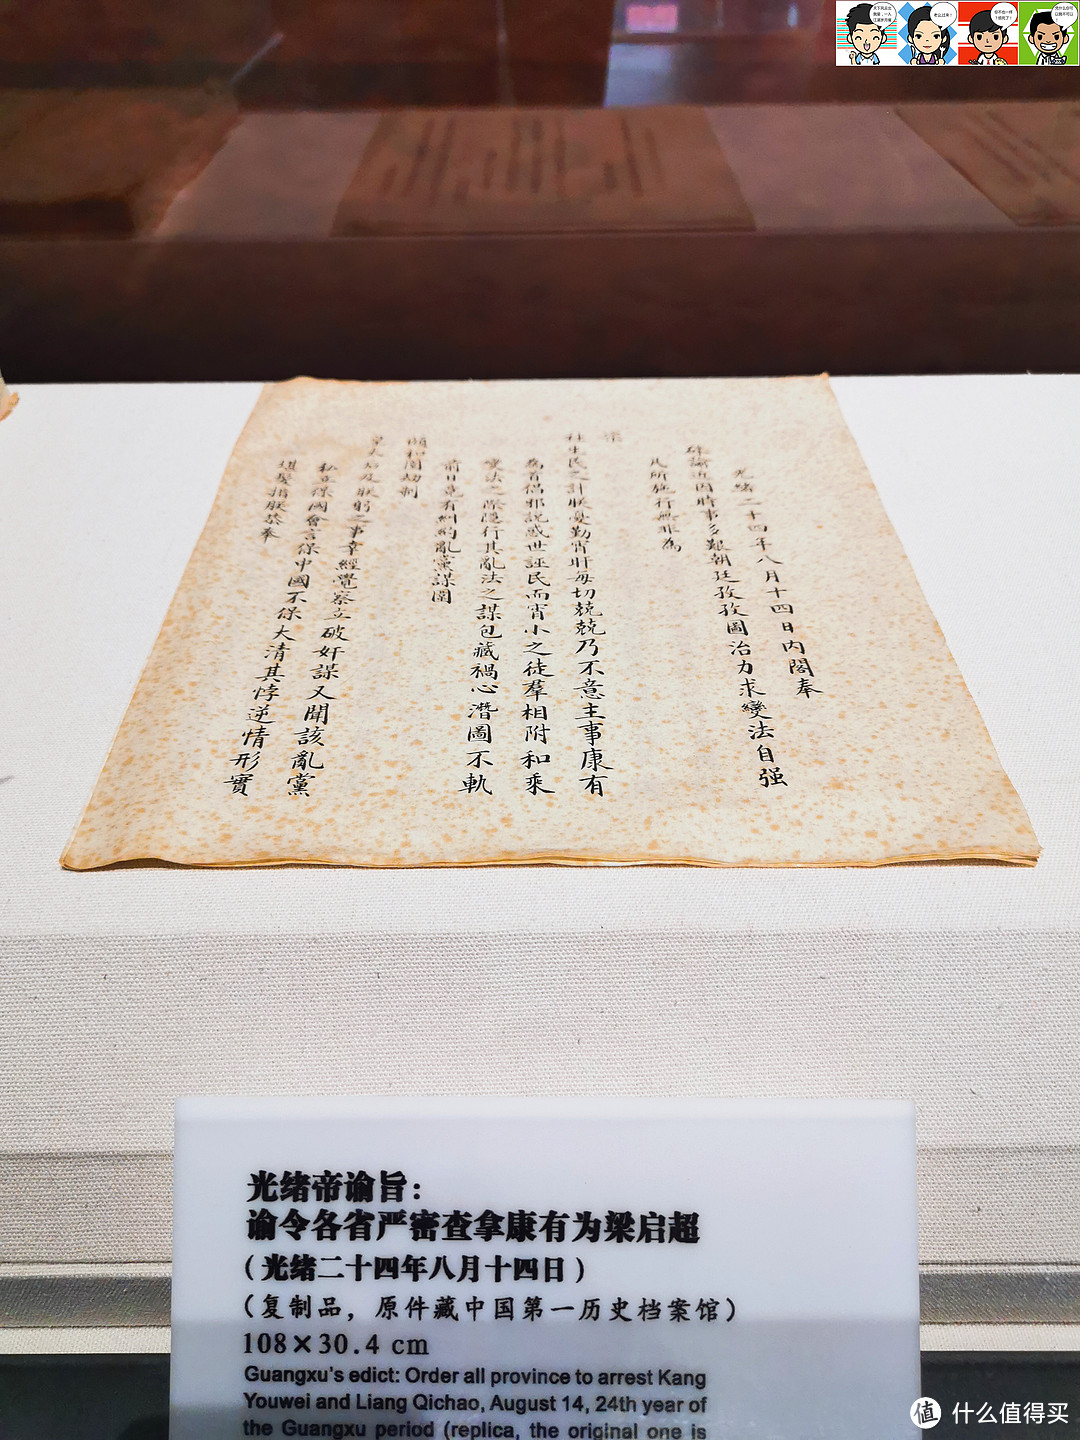 天下风云出
我辈，一入
江湖岁月催
老公过来！
凭什么你可
以我不可以
光緒二十四年八月十四日内閣奉
硃諭近因時事多艱朝廷孜孜圖治力求變法自强
凡所施行無非為
社生民之計朕憂勤宵旰每切兢兢乃不意主事康有
為首倡邪說惑世誣民而宵小之徒羣相附和乘
變法之際隱行其亂法之謀包藏禍心潛圖不軌
前日竟有糾約亂黨謀圍
頤和園劫制
皇太后及朕躬之事幸經覺察立破奸謀又聞該亂黨
私立保國會言保中國不保大清其悖逆情形實
堪髮指朕恭奉
光绪帝谕旨：
谕令各省严密查拿康有为梁启超
（光绪二十四年八月十四日）
（复制品，原件藏中国第一历史档案馆）
108×30.4 cm
Guangxu's edict: Order all province to arrest Kang
Youwei and Liang Qichao, August 14, 24th year of
the Guangxu period (replica, the original one is
值 什么值得买